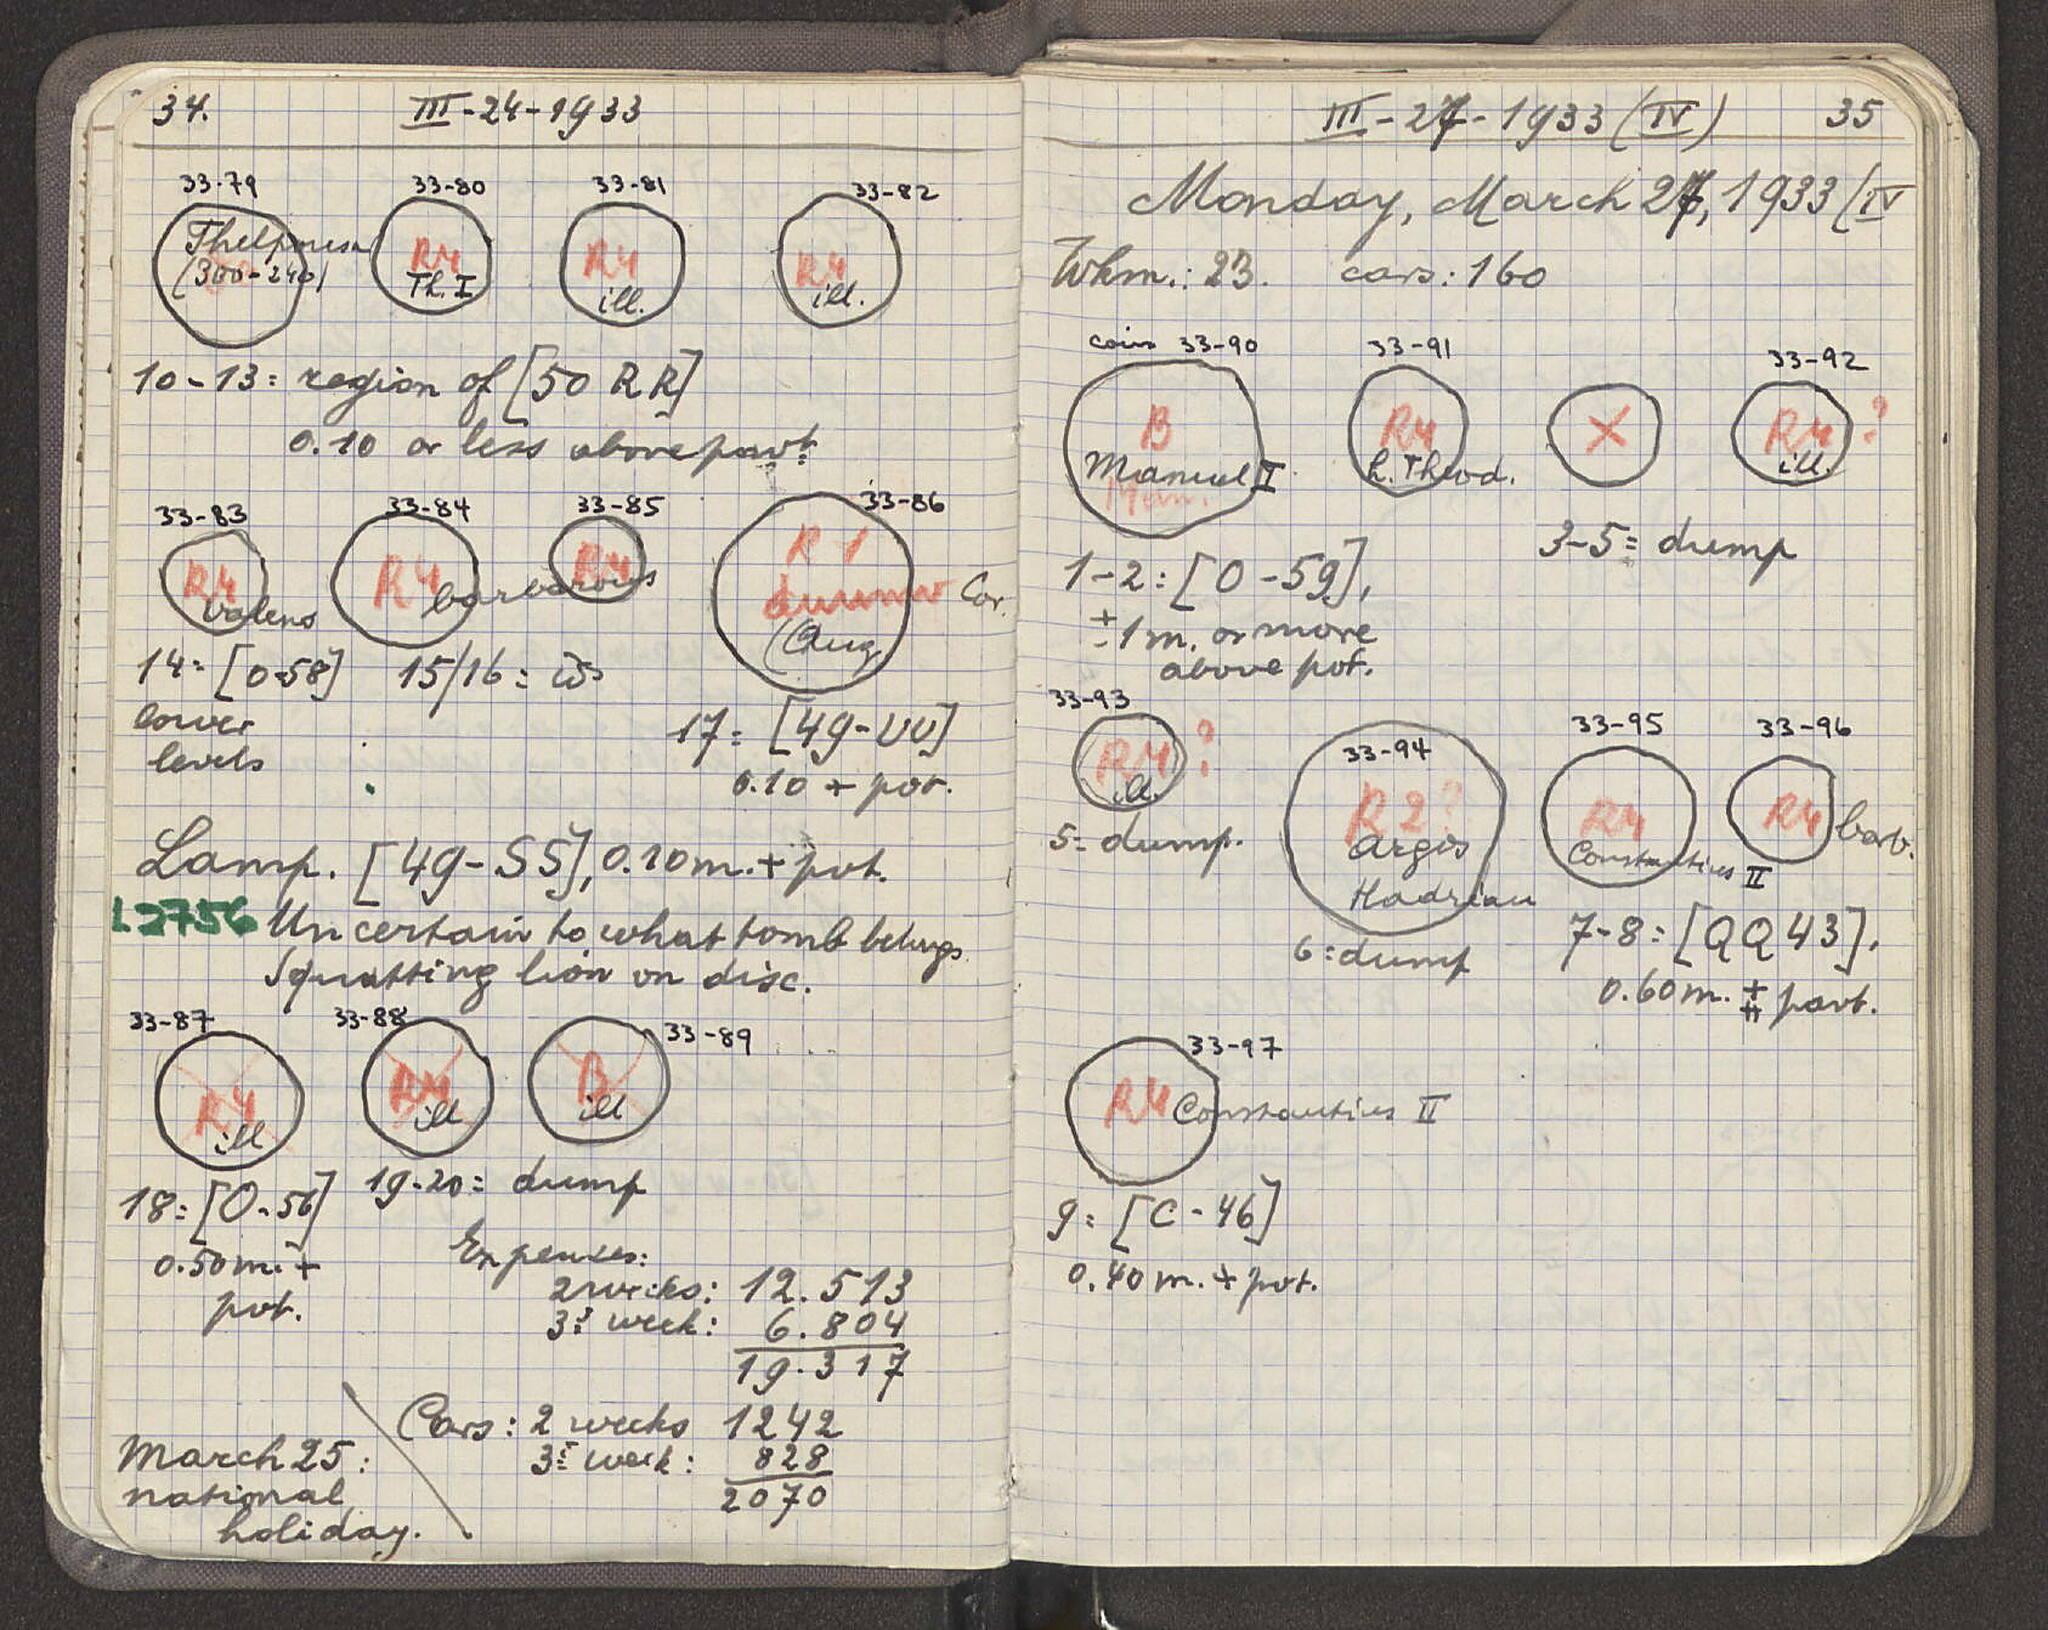 34. III-24-1933
33-79 33-80 33-81 33-82
Thelpousa
(300-240)
R4
Th. I
R4
ill.
R4
ill.
10-13: region of [50 RR]
0.10 or less above pavt.
33-83 33-84 33-85 33-86
R4
Valens
R4
R4
barbarous
R1
(Aug
Cor.
14: [O-58] 15/16: id
lower
levels
17: [49-UU]
0.10 + pvt.
Lamp. [49-SS], 0.10 m. + pvt.
L2756 Uncertain to what tomb belongs.
Squatting lion on disc.
33-87 33-88 33-89
R4
ill
R4
ill
B
ill
18: [O-56] 19-20: dump
0.50 m. +
pvt.
Expenses:
2 weeks: 12.513
3d week: 6.804
19.317
Cars: 2 weeks 1242
3d week: 828
2070
March 25:
national
holiday.
III-27-1933 (IV) 35
Monday, March 27, 1933 (IV
Wkm.: 23. cars: 160
coins 33-90 33-91 33-92
B
Manuel II
Man.
R4
h. Theod.
X
R4 ?
ill.
1-2: [O-59],
± 1 m. or more
above pvt.
3-5: dump
33-93 33-94 33-95 33-96
R4 ?
ill.
R2?
Argos
Hadrian
R4
Constantius II
R4 barb.
5: dump.
6: dump
7-8: [QQ 43],
0.60 m. + pavt.
33-97
R4 Constantius II
9: [C-46]
0.40 m. + pvt.